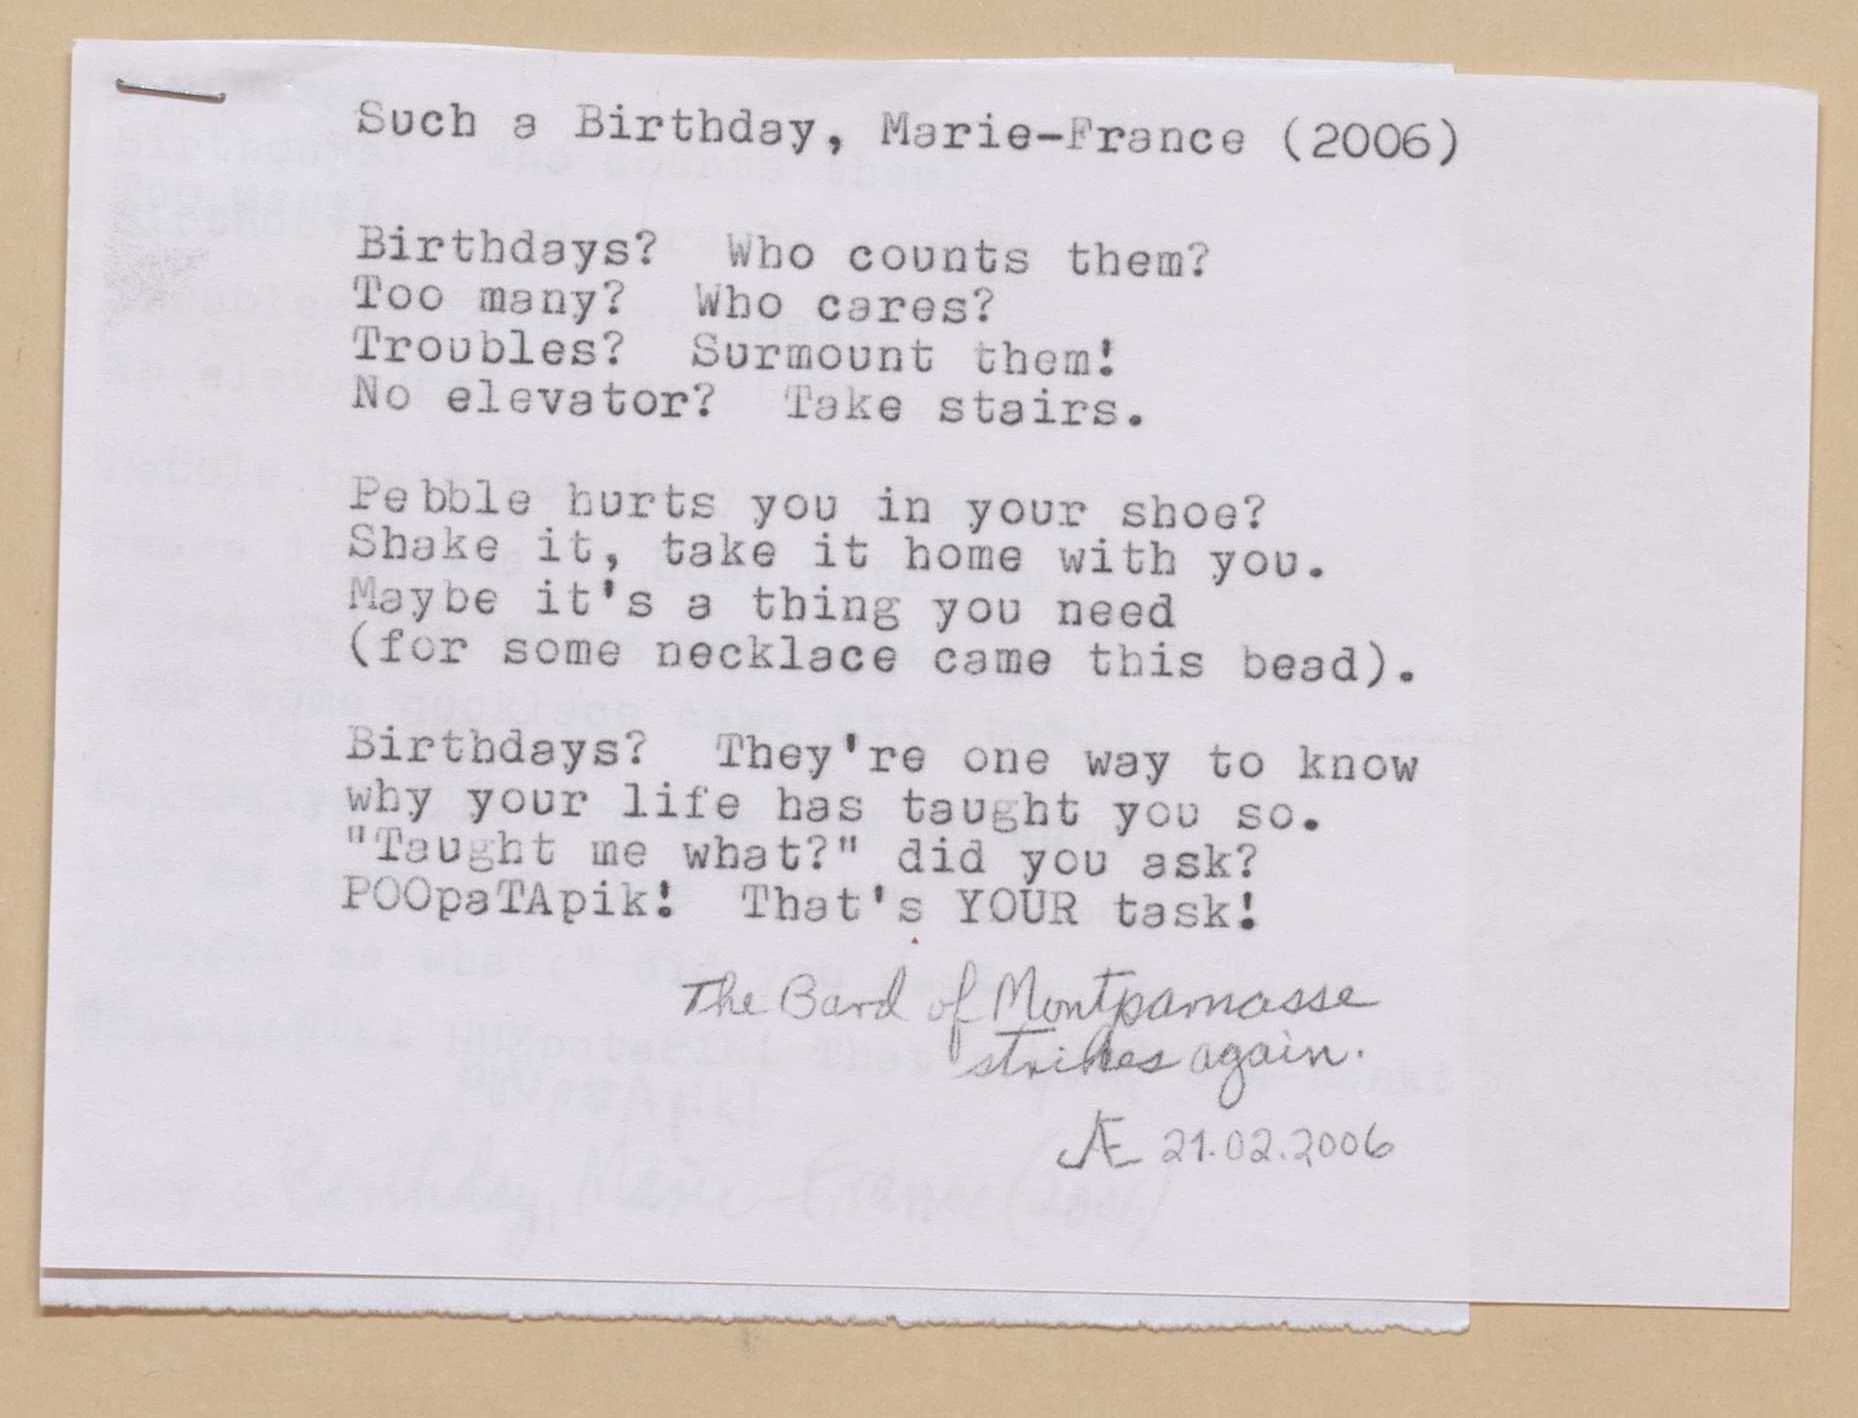 Such a Birthday, Marie-France (2006)
Birthdays?  Who counts them?
Too many?  Who cares?
Troubles?  Surmount them!
No elevator?  Take stairs.
Pebble hurts you in your shoe?
Shake it, take it home with you.
Maybe it's a thing you need
(for some necklace came this bead).
Birthdays?  They're one way to know
why your life has taught you so.
"Taught me what?" did you ask?
POOpaTApik!  That's YOUR task!
The Bard of Montparnasse
strikes again.
AE 21.02.2006